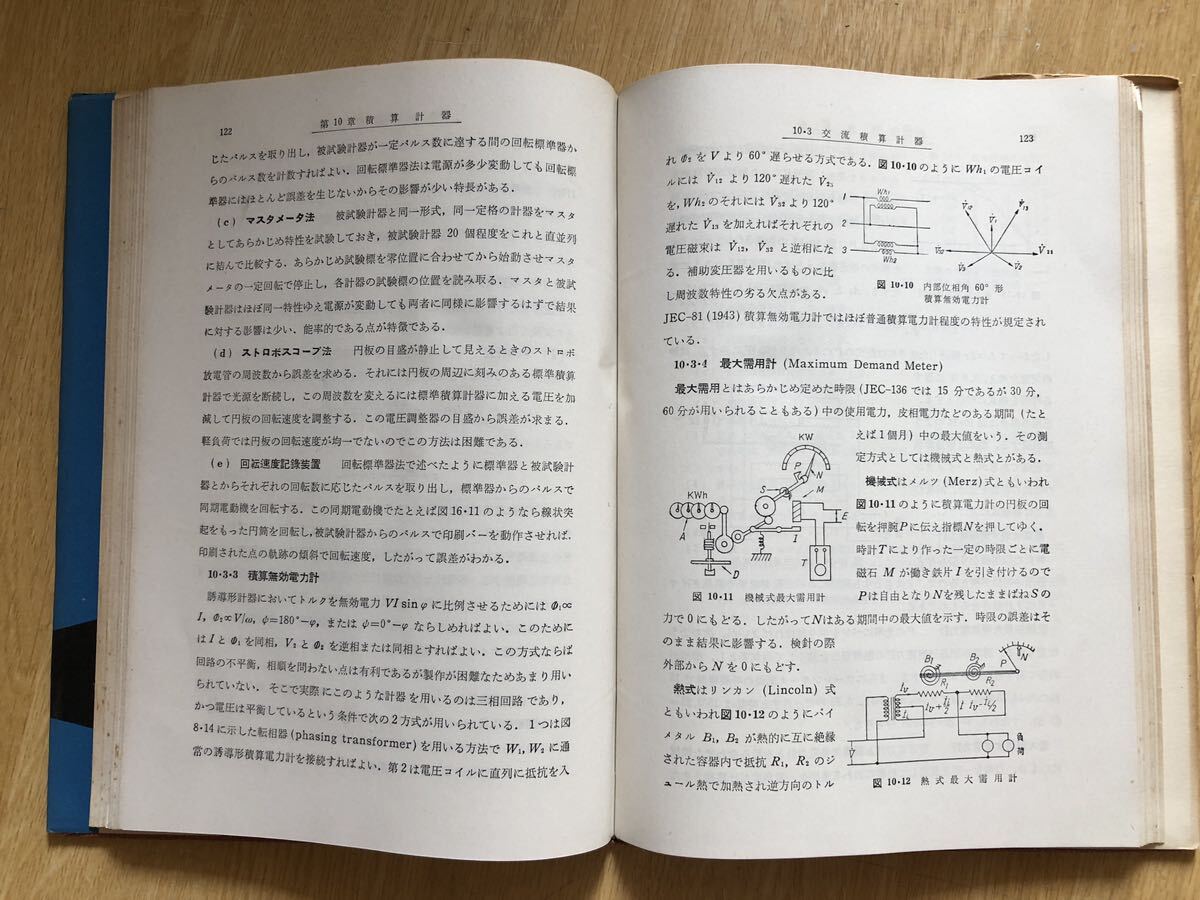 122
第10章 積算計器
じたパルスを取り出し，被試験計器が一定パルス数に達する間の回転標準器か
らのパルス数を計数すればよい．回転標準器法は電源が多少変動しても回転標
準器にはほとんど誤差を生じないからその影響が少い特長がある．
(c) マスタメータ法　被試験計器と同一形式，同一定格の計器をマスタ
としてあらかじめ特性を試験しておき，被試験計器 20 個程度をこれと直並列
に結んで比較する．あらかじめ試験標を零位置に合わせてから始動させマスタ
メータの一定回転で停止し，各計器の試験標の位置を読み取る．マスタと被試
験計器はほぼ同一特性ゆえ電源が変動しても両者に同様に影響するはずで結果
に対する影響は少い．能率的である点が特徴である．
(d) ストロボスコープ法　円板の目盛が静止して見えるときのストロボ
放電管の周波数から誤差を求める．それには円板の周辺に刻みのある標準積算
計器で光源を断続し，この周波数を変えるには標準積算計器に加える電圧を加
減して円板の回転速度を調整する．この電圧調整器の目盛から誤差が求まる．
軽負荷では円板の回転速度が均一でないのでこの方法は困難である．
(e) 回転速度記録装置　回転標準器法で述べたように標準器と被試験計
器とからそれぞれの回転数に応じたパルスを取り出し，標準器からのパルスで
同期電動機を回転する．この同期電動機でたとえば図 16·11 のような線状突
起をもった円筒を回転し，被試験計器からのパルスで印刷バーを動作させれば，
印刷された点の軌跡の傾斜で回転速度，したがって誤差がわかる．
10·3·3 積算無効電力計
誘導形計器においてトルクを無効電力 VI sin φ に比例させるためには Φ₁∝
I, Φ₂∝V/ω, ψ=180°−φ, または ψ=0°−φ ならしめればよい．このために
は I と Φ₁ を同相，V₂ と Φ₂ を逆相または同相とすればよい．この方式ならば
回路の不平衡，相順を問わない点は有利であるが製作が困難なためあまり用い
られていない．そこで実際にこのような計器を用いるのは三相回路であり，
かつ電圧は平衡しているという条件で次の2方式が用いられている．1つは図
8·14 に示した転相器 (phasing transformer) を用いる方法で W₁, W₂ に通
常の誘導形積算電力計を接続すればよい．第2は電圧コイルに直列に抵抗を入
10·3 交流積算計器
123
れ Φ₂ を V より 60° 遅らせる方式である．図 10·10 のように Wh₁ の電圧コイ
ルには V̇₁₂ より 120° 遅れた V̇₂₃
を，Wh₂ のそれには V̇₃₂ より 120°
遅れた V̇₁₃ を加えればそれぞれの
電圧磁束は V̇₁₂, V̇₃₂ と逆相にな
る．補助変圧器を用いるものに比
し周波数特性の劣る欠点がある．
1
2
3
Wh₁
Wh₂
V̇₁₂
V̇₁
V̇₁₃
V̇₃
V̇₂
図 10·10 内部位相角 60° 形
積算無効電力計
JEC-81 (1943) 積算無効電力計ではほぼ普通積算電力計程度の特性が規定され
ている．
10·3·4 最大需用計 (Maximum Demand Meter)
最大需用とはあらかじめ定めた時限 (JEC-136 では 15 分であるが 30 分，
60 分が用いられることもある) 中の使用電力，皮相電力などのある期間 (たと
えば1個月) 中の最大値をいう．その測
定方式としては機械式と熱式とがある．
機械式はメルツ (Merz) 式ともいわれ
図 10·11 のように積算電力計の円板の回
転を押腕 P に伝え指標 N を押してゆく．
時計 T により作った一定の時限ごとに電
磁石 M が働き鉄片 I を引き付けるので
P は自由となり N を残したままばね S の
KW
P
N
S
M
KWh
A
E
I
T
D
図 10·11 機械式最大需用計
力で 0 にもどる．したがって N はある期間中の最大値を示す．時限の誤差はそ
のまま結果に影響する．検針の際
外部から N を 0 にもどす．
熱式はリンカン (Lincoln) 式
ともいわれ図 10·12 のようにバイ
メタル B₁, B₂ が熱的に互に絶縁
された容器内で抵抗 R₁, R₂ のジ
ュール熱で加熱され逆方向のトル
B₁
B₂
P
N
R₁
R₂
負
荷
図 10·12 熱式最大需用計